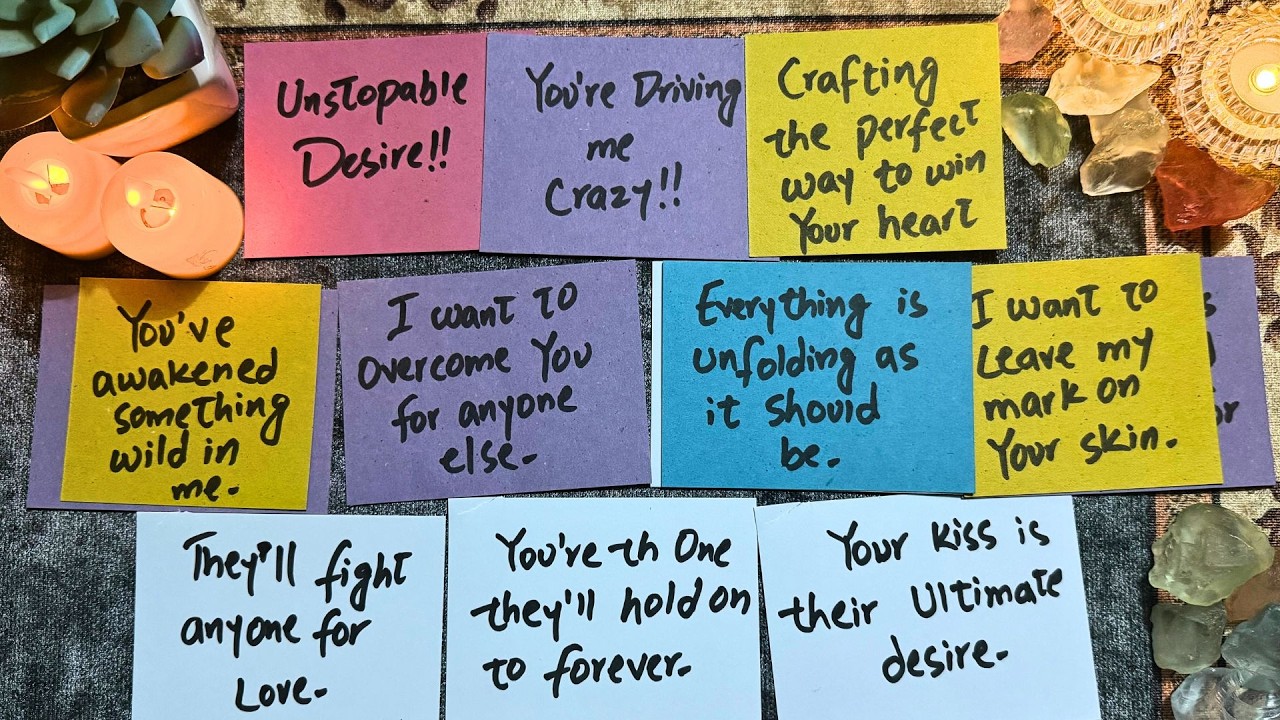 Unstopable
Desire!!
You're Driving
me
Crazy!!
Crafting
the perfect
way to win
Your heart
You've
awakened
something
wild in
me.
I want to
overcome You
for anyone
else.
Everything is
unfolding as
it should
be.
I want to
Leave my
mark on
Your skin.
They'll fight
anyone for
Love.
You're th One
they'll hold on
to forever.
Your kiss is
their Ultimate
desire.